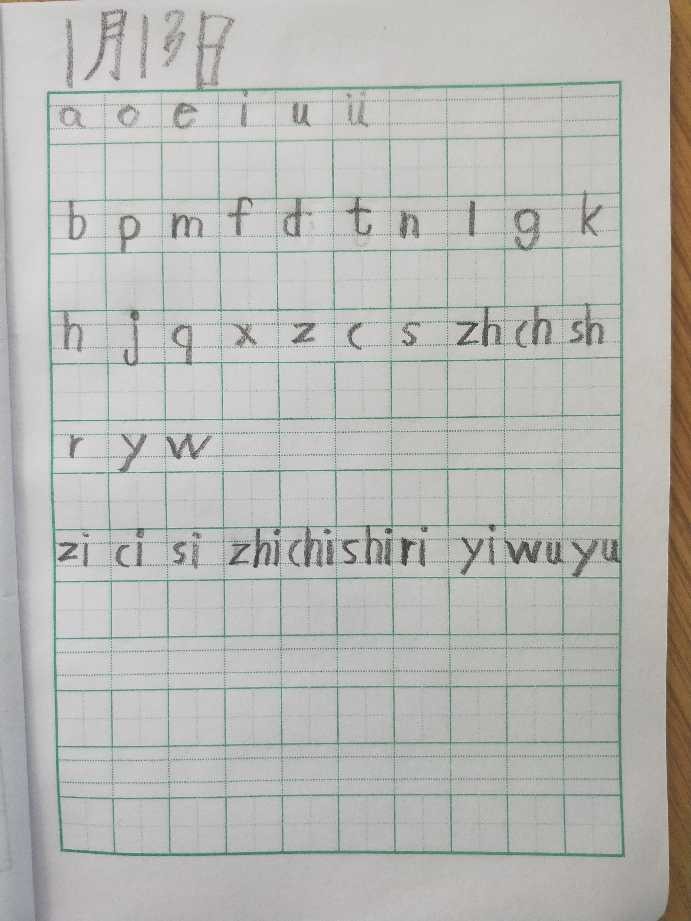 1月13日
a o e i u ü
b p m f d t n l g k
h j q x z c s zh ch sh
r y w
zi ci si zhi chi shi ri yi wu yu